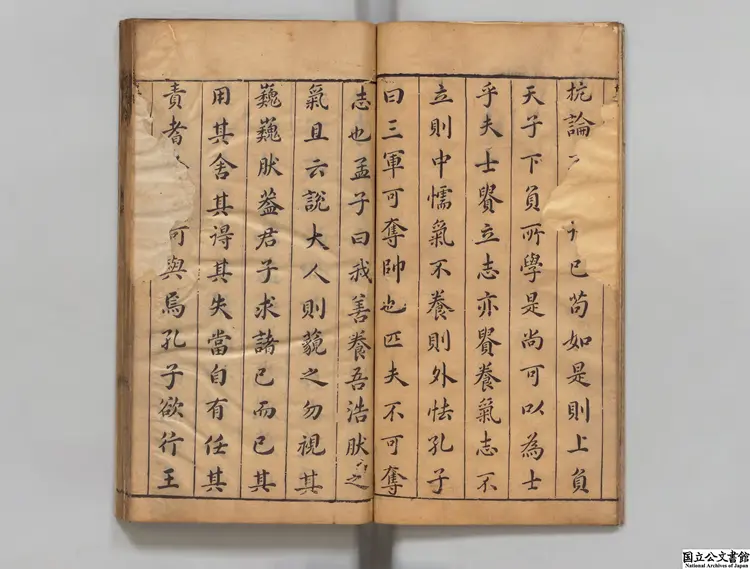 抗論已苟如是則上負
天子下負所學是尚可以為士
乎夫士貴立志亦貴養氣志不
立則中懦氣不養則外怯孔子
曰三軍可奪帥也匹夫不可奪
志也孟子曰我善養吾浩肰之
氣且云說大人則藐之勿視其
巍巍肰葢君子求諸已而已其
用其舍其得其失當自有任其
責者可與焉孔子欲行王
国立公文書館
National Archives of Japan